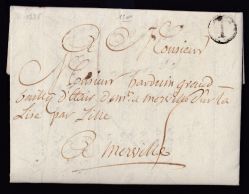 A Monsieur
Monsieur harduin grand
bailly d'Estair demt a merville sur la
Lise par Lille
A Merville